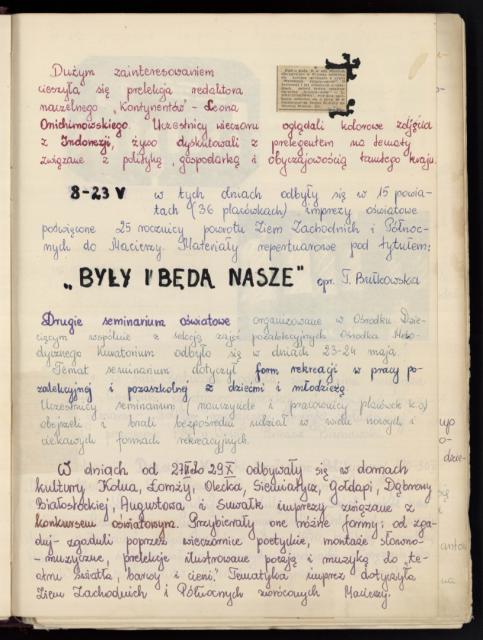 Dużym zainteresowaniem
cieszyła się prelekcja redaktora
naczelnego „Kontynentów" - Leona
Onichimowskiego. Uczestnicy wieczoru oglądali kolorowe zdjęcia
z Indonezji, żywo dyskutowali z prelegentem na tematy
związane z polityką, gospodarką i obyczajowością tamtego kraju.
8-23 V w tych dniach odbyły się w 15 powia-
tach (36 placówkach) imprezy oświatowe
poświęcone 25 rocznicy powrotu Ziem Zachodnich i Północ-
nych do Macierzy. Materiały repertuarowe pod tytułem:
„BYŁY I BĘDĄ NASZE" opr. T. Butkowska
Drugie seminarium oświatowe organizowane w Ośrodku Dzie-
cięcym wspólnie z sekcją zajęć pozalekcyjnych Ośrodka Meto-
dycznego Kuratorium odbyło się w dniach 23-24 maja.
Temat seminarium dotyczył form rekreacji w pracy po-
zalekcyjnej i pozaszkolnej z dziećmi i młodzieżą
Uczestnicy seminarium (nauczyciele i pracownicy placówek k.o)
obejrzeli i brali bezpośredni udział w wielu nowych i
ciekawych formach rekreacyjnych.
W dniach od 27 do 29 X odbywały się w domach
kultury Kolna, Łomży, Olecka, Siemiatycz, Gołdapi, Dąbrowy
Białostockiej, Augustowa i Suwałk imprezy związane z
konkursem oświatowym. Przybierały one różne formy: od zga-
duj-zgaduli poprzez wieczornice poetyckie, montaże słowno-
-muzyczne, prelekcje ilustrowane poezją i muzyką do „te-
atru światła, barwy i cieni." Tematyka imprez dotyczyła
Ziem Zachodnich i Północnych zwróconych Macierzy.